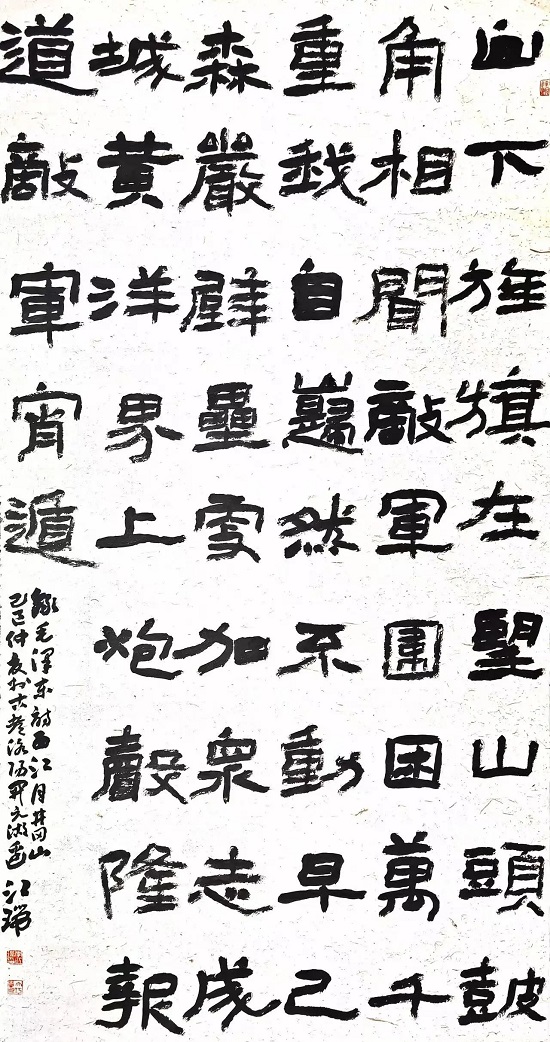 山下旌旗在望山頭鼓
角相聞敵軍圍困萬千
重我自巋然不動早已
森嚴壁壘更加眾志成
城黃洋界上炮聲隆報
道敵軍宵遁
錄毛澤东詩西江月井岡山
仲夏於古洛陽開元湖邊江瑞